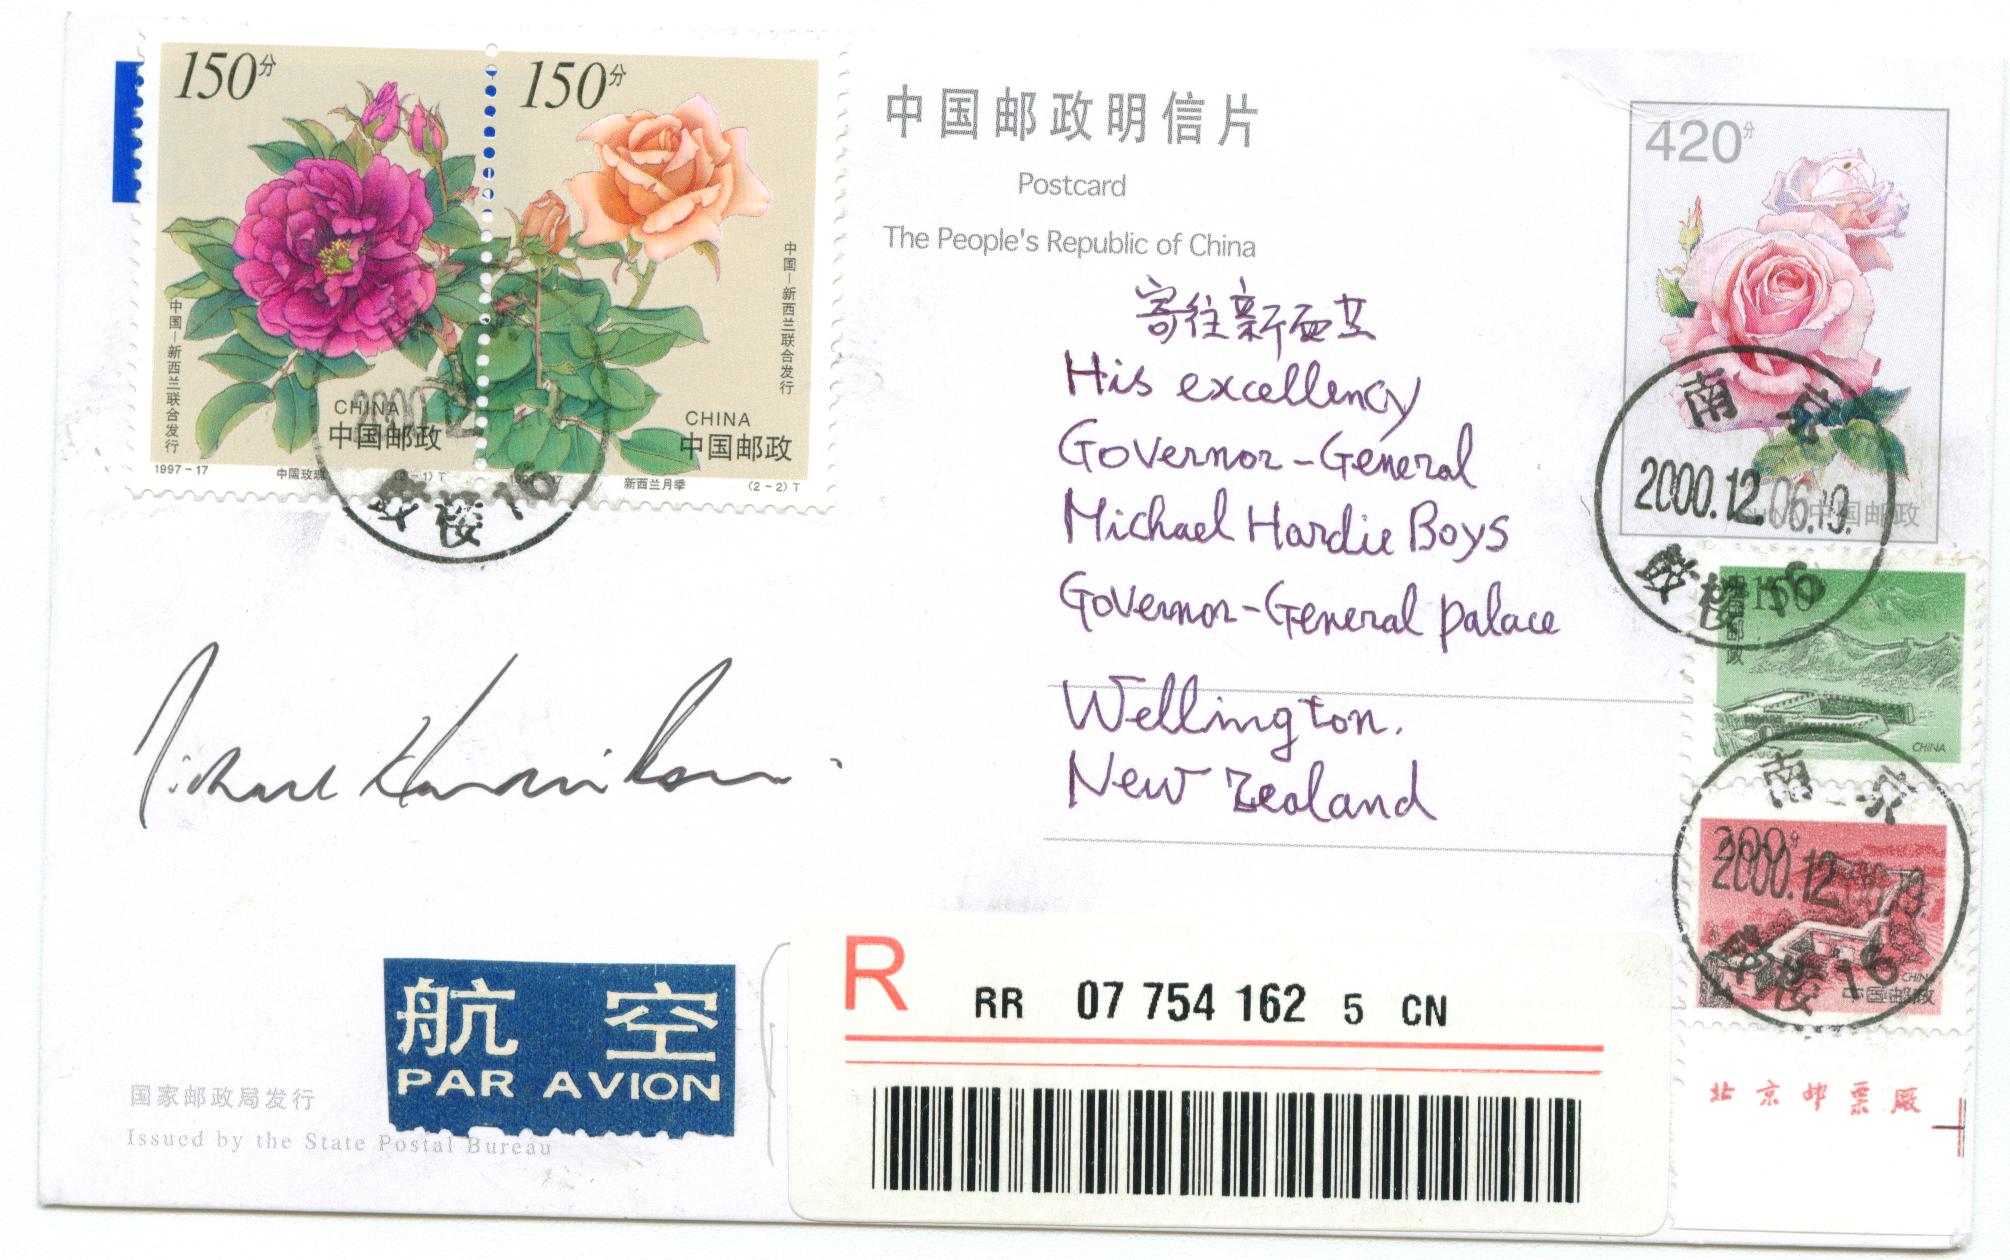 150分
150分
中国－新西兰联合发行
中国－新西兰联合发行
CHINA
中国邮政
CHINA
中国邮政
1997-17
中国玫瑰
(2-1) T
新西兰月季
(2-2) T
中国邮政明信片
Postcard
The People's Republic of China
420分
中国邮政
寄往新西兰
His excellency
Governor-General
Michael Hardie Boys
Governor-General palace
Wellington.
New Zealand
南京
2000.12.06.19.
鼓楼16
150
CHINA
南京
2000.12
楼16
200分
中国邮政
2000.12
鼓楼16
北京邮票厂
航空
PAR AVION
国家邮政局发行
Issued by the State Postal Bureau
R
RR 07 754 162 5 CN